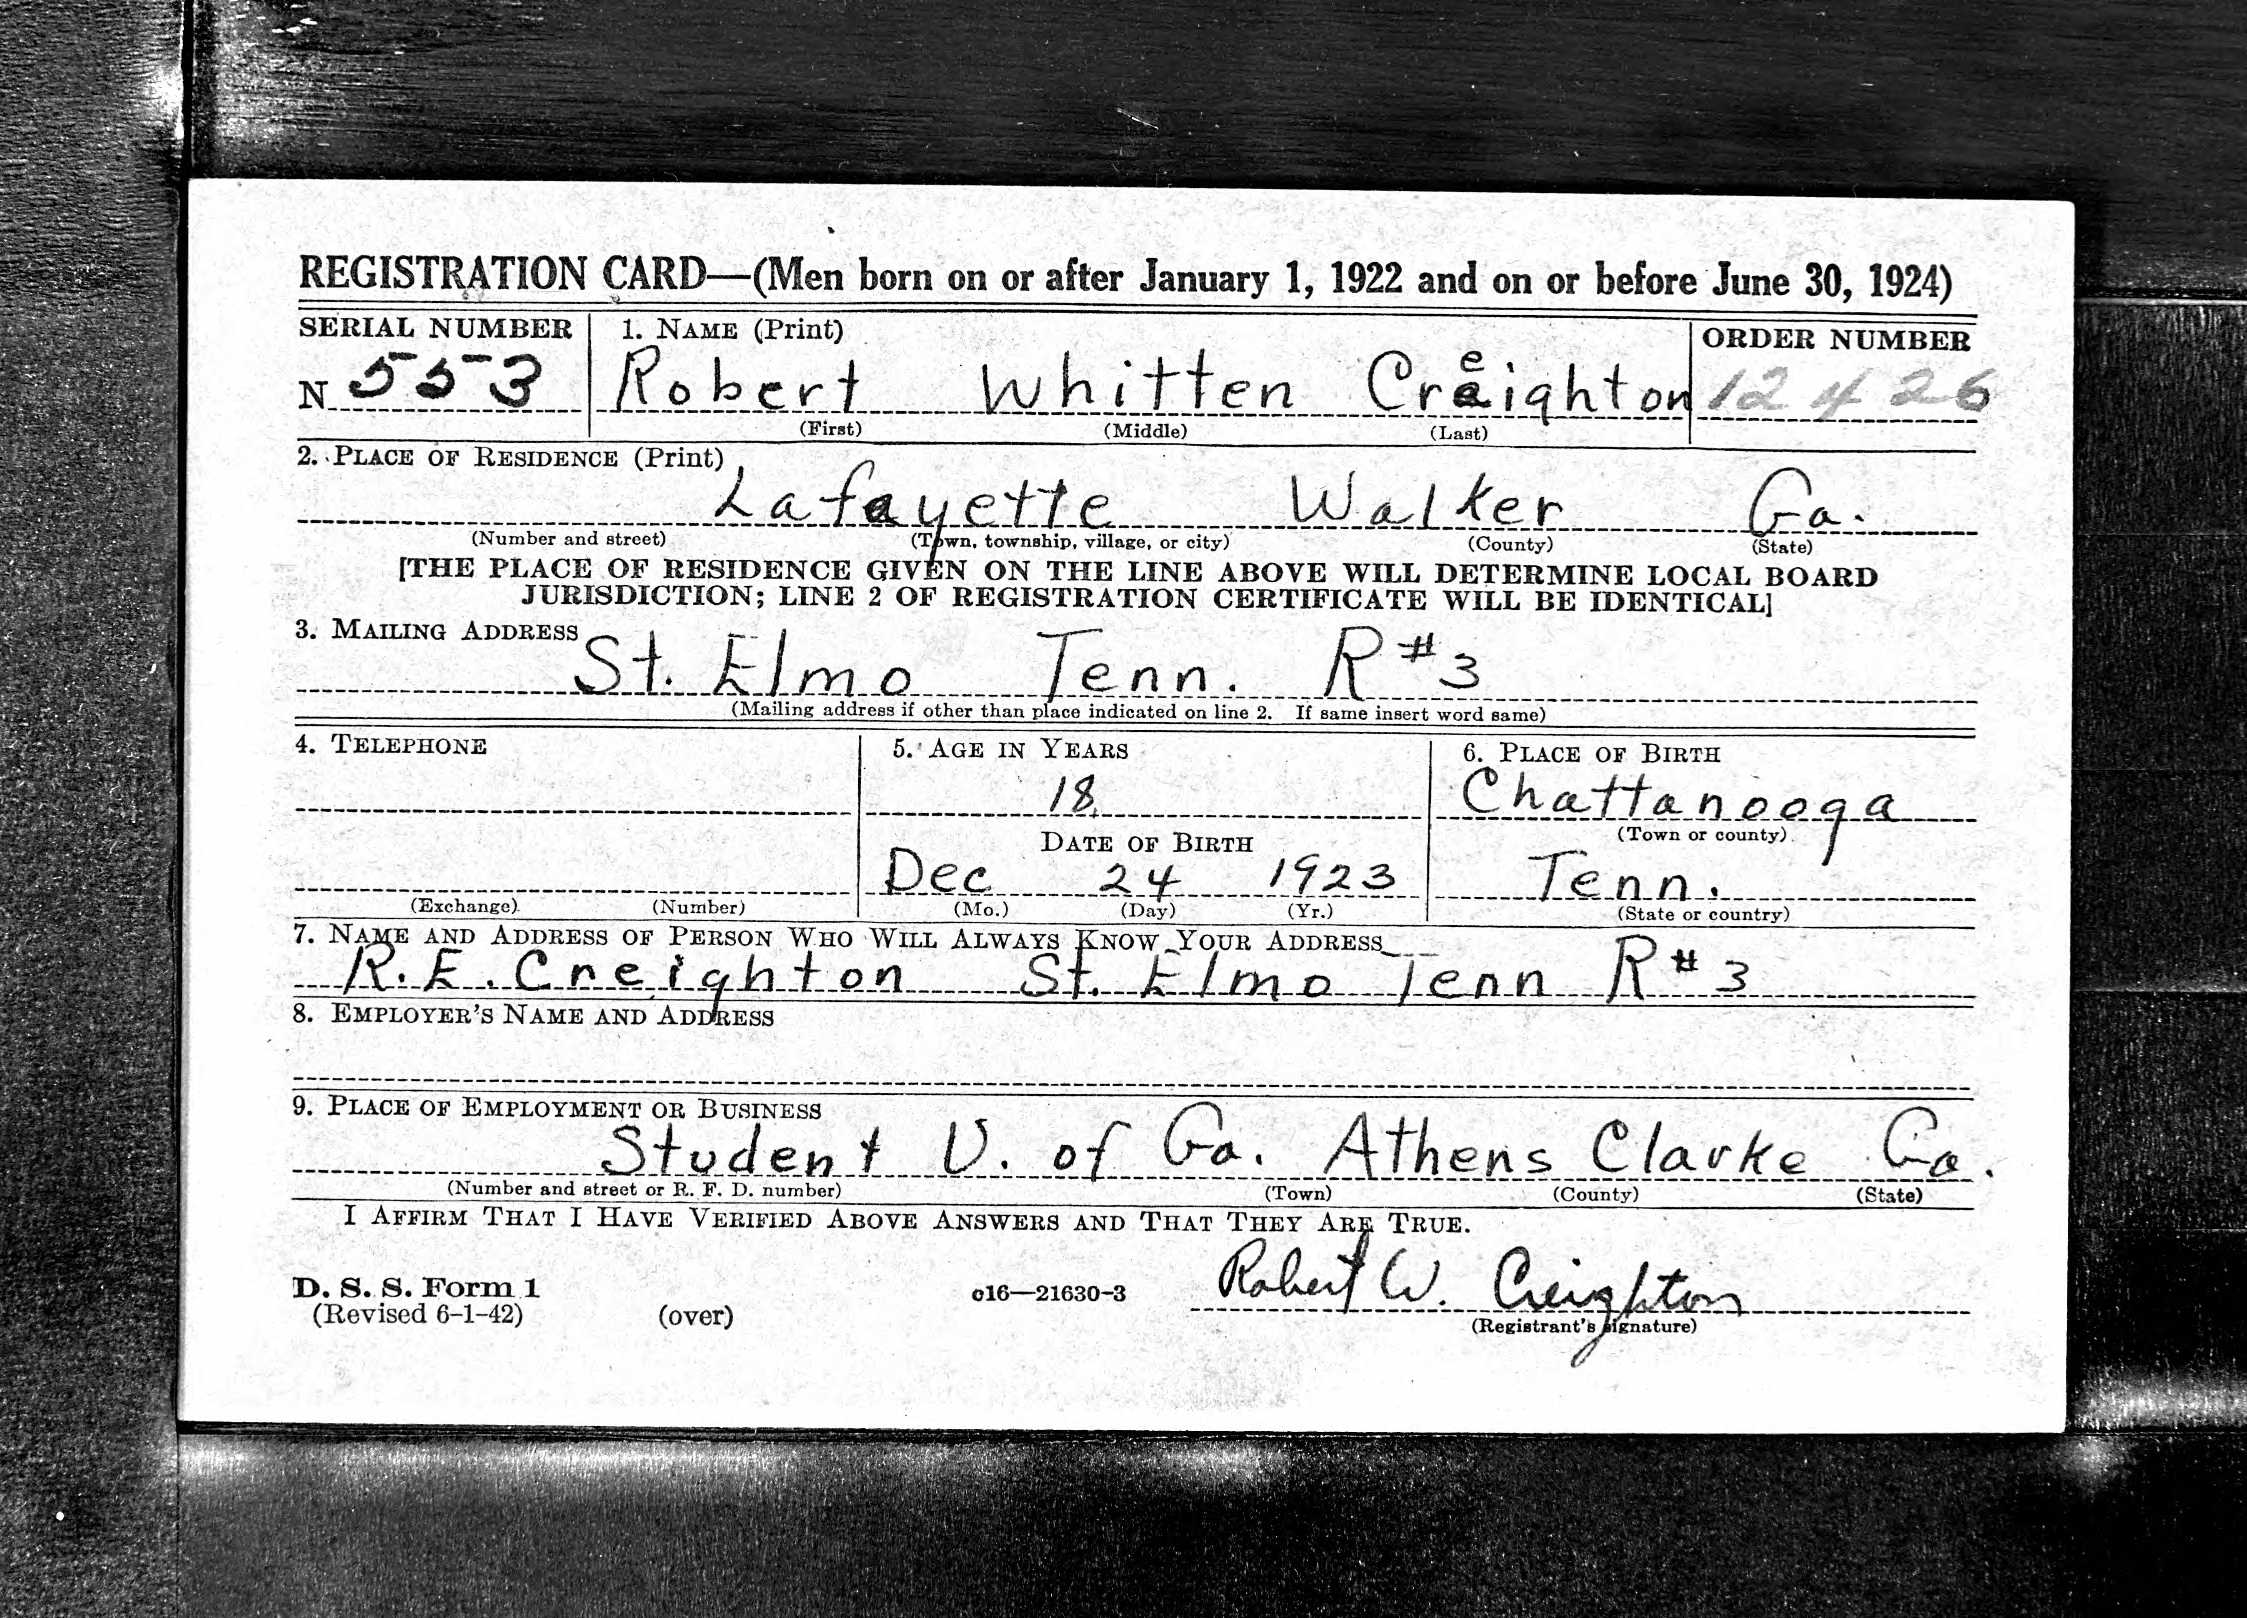 REGISTRATION CARD—(Men born on or after January 1, 1922 and on or before June 30, 1924)
SERIAL NUMBER 1. NAME (Print) ORDER NUMBER
N 553 Robert Whitten Creighton 12426
(First) (Middle) (Last)
2. PLACE OF RESIDENCE (Print)
Lafayette Walker Ga.
(Number and street) (Town, township, village, or city) (County) (State)
[THE PLACE OF RESIDENCE GIVEN ON THE LINE ABOVE WILL DETERMINE LOCAL BOARD
JURISDICTION; LINE 2 OF REGISTRATION CERTIFICATE WILL BE IDENTICAL]
3. MAILING ADDRESS
St. Elmo Tenn. R#3
(Mailing address if other than place indicated on line 2. If same insert word same)
4. TELEPHONE 5. AGE IN YEARS 6. PLACE OF BIRTH
18 Chattanooga
DATE OF BIRTH (Town or county)
Dec 24 1923 Tenn.
(Exchange) (Number) (Mo.) (Day) (Yr.) (State or country)
7. NAME AND ADDRESS OF PERSON WHO WILL ALWAYS KNOW YOUR ADDRESS
R. E. Creighton St. Elmo Tenn R#3
8. EMPLOYER'S NAME AND ADDRESS
9. PLACE OF EMPLOYMENT OR BUSINESS
Student U. of Ga. Athens Clarke Ga.
(Number and street or R. F. D. number) (Town) (County) (State)
I AFFIRM THAT I HAVE VERIFIED ABOVE ANSWERS AND THAT THEY ARE TRUE.
Robert W. Creighton
D. S. S. Form 1 c16—21630-3
(Revised 6-1-42) (over) (Registrant's signature)